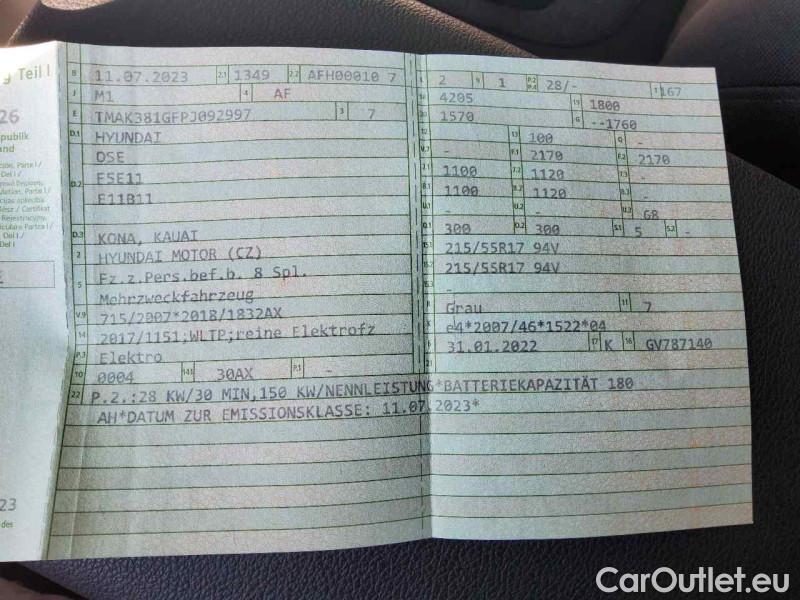 g Teil I
26
publik
and
B 11.07.2023 2.1 1349 2.2 AFH00010 7
J M1 4 AF
E TMAK381GFPJ092997 3 7
D.1 HYUNDAI
OSE
D.2 E5E11
E11B11
D.3 KONA, KAUAI
2 HYUNDAI MOTOR (CZ)
5 Fz.z.Pers.bef.b. 8 Spl.
Mehrzweckfahrzeug
V.9 715/2007*2018/1832AX
14 2017/1151;WLTP;reine Elektrofz
P.3 Elektro
10 0004 14.1 30AX P.1 -
L 2 9 1 P.2 P.4 28/- T 167
18 4205 19 1800
20 1570 G --1760
12 - 13 100 Q -
V.7 - F.1 2170 F.2 2170
7.1 1100 7.2 1120 7.3 -
8.1 1100 8.2 1120 8.3 -
U.1 - U.2 - U.3 68
O.1 300 O.2 300 S.1 5 S.2 -
15.1 215/55R17 94V
15.2 215/55R17 94V
15.3 -
R Grau 11 7
K e4*2007/46*1522*04
6 31.01.2022 17 K 16 GV787140
21
22 P.2.:28 KW/30 MIN,150 KW/NENNLEISTUNG*BATTERIEKAPAZITÄT 180
AH*DATUM ZUR EMISSIONSKLASSE: 11.07.2023*
23
des
CarOutlet.eu